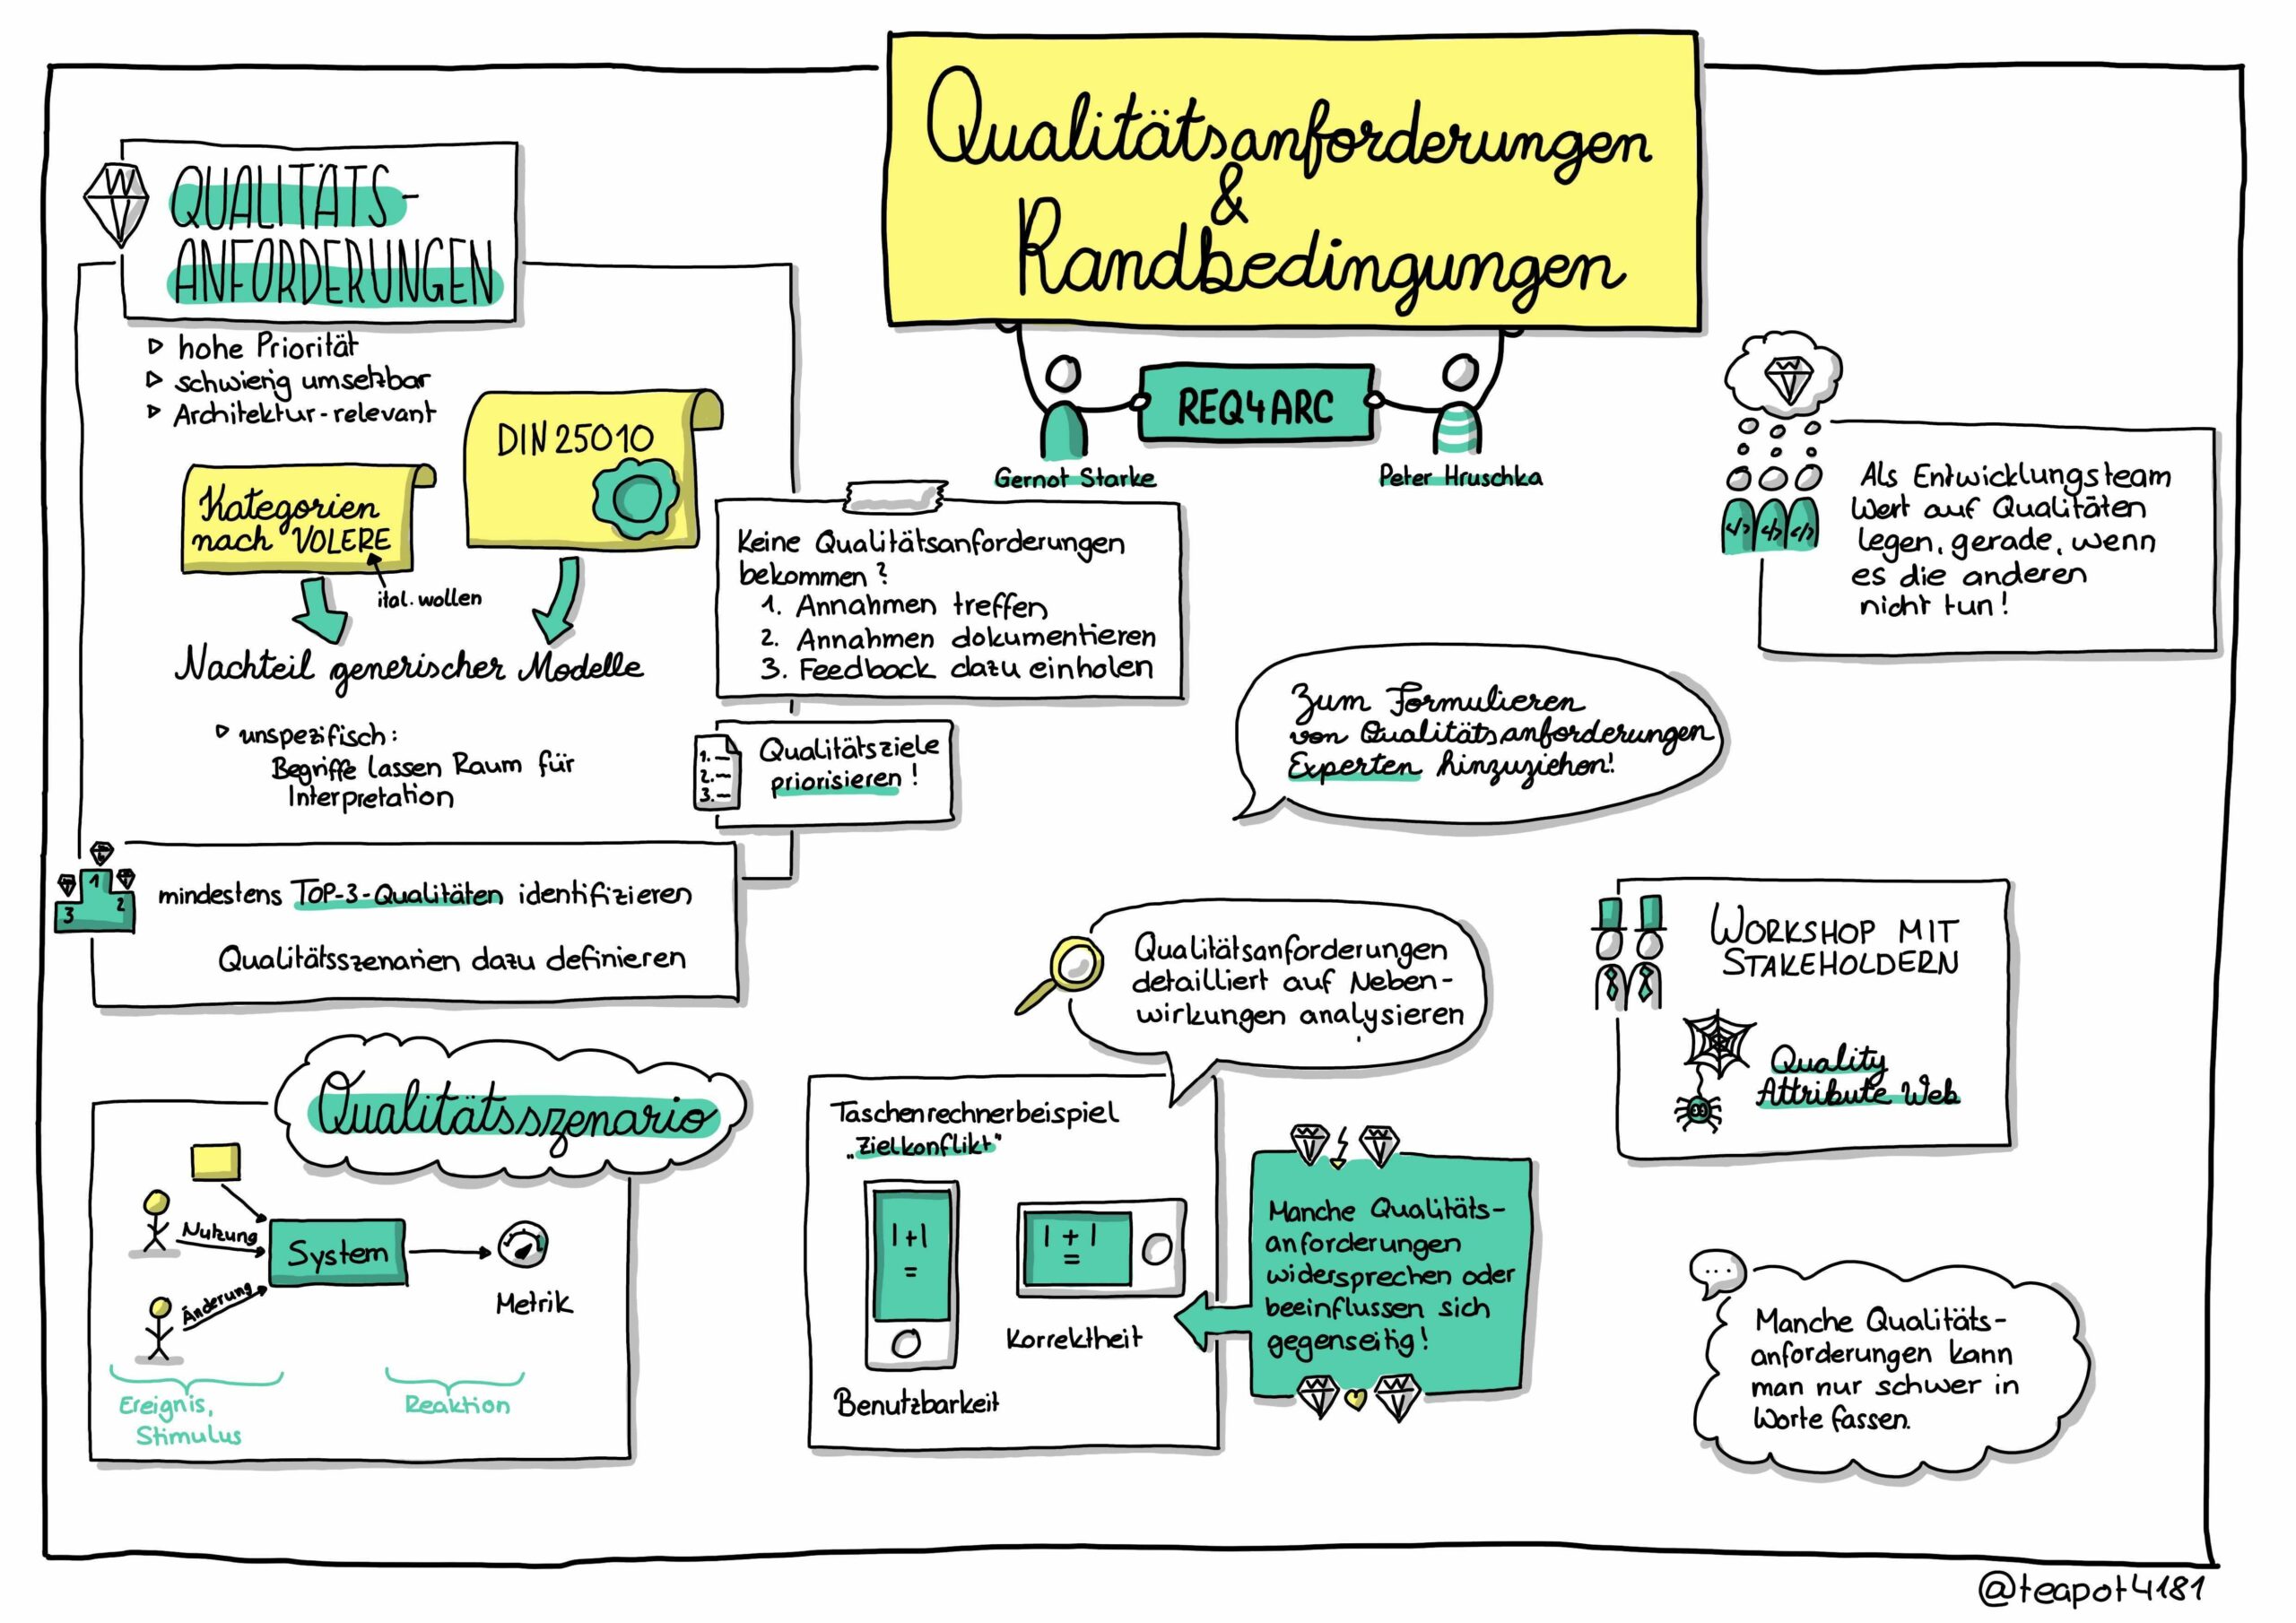 Qualitätsanforderungen
&
Randbedingungen
REQ4ARC
Gernot Starke
Peter Hruschka
QUALITÄTS-
ANFORDERUNGEN
hohe Priorität
schwierig umsetzbar
Architektur-relevant
DIN 25010
Kategorien
nach VOLERE
ital. wollen
Nachteil generischer Modelle
unspezifisch:
Begriffe lassen Raum für
Interpretation
Keine Qualitätsanforderungen
bekommen?
1. Annahmen treffen
2. Annahmen dokumentieren
3. Feedback dazu einholen
1.
2.
3.
Qualitätsziele
priorisieren!
1
2
3
mindestens TOP-3-Qualitäten identifizieren
Qualitätsszenarien dazu definieren
Qualitätsszenario
Nutzung
Änderung
System
Metrik
Ereignis,
Stimulus
Reaktion
Als Entwicklungsteam
Wert auf Qualitäten
legen, gerade, wenn
es die anderen
nicht tun!
</> </> </>
Zum Formulieren
von Qualitätsanforderungen
Experten hinzuziehen!
Qualitätsanforderungen
detailliert auf Neben-
wirkungen analysieren
Taschenrechnerbeispiel
„Zielkonflikt"
1+1
=
Benutzbarkeit
1 + 1
=
Korrektheit
Manche Qualitäts-
anforderungen
widersprechen oder
beeinflussen sich
gegenseitig!
WORKSHOP MIT
STAKEHOLDERN
Quality
Attribute Web
...
Manche Qualitäts-
anforderungen kann
man nur schwer in
Worte fassen.
@teapot4181